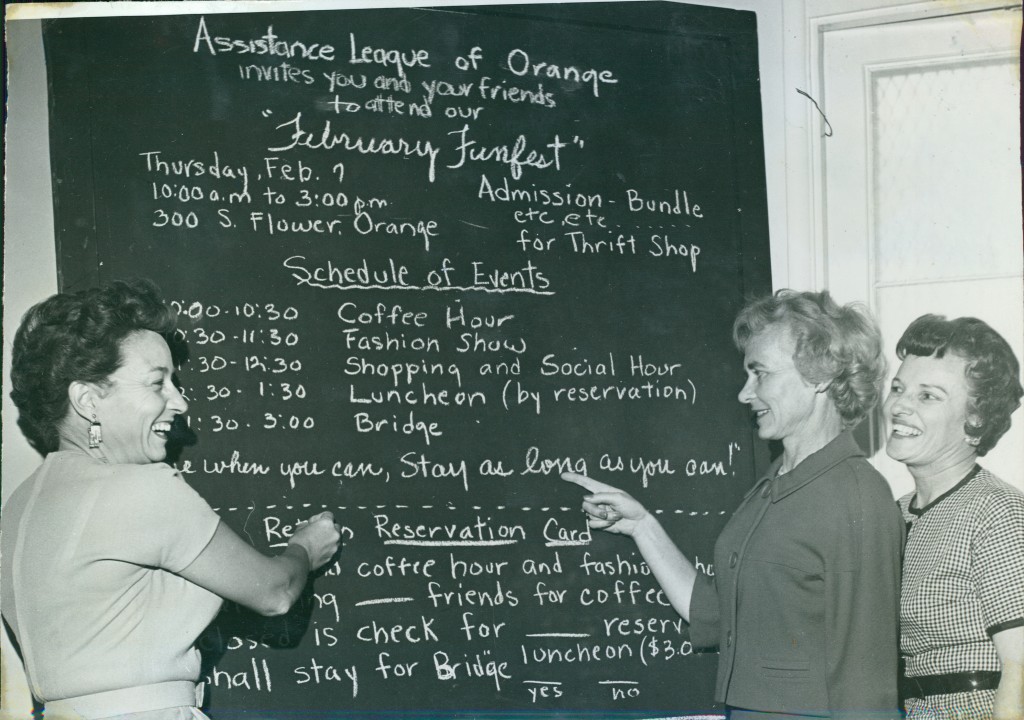 Assistance League of Orange
invites you and your friends
to attend our
"February Funfest"
Thursday, Feb. 7
10:00 a.m to 3:00 p.m.
300 S. Flower, Orange
Admission - Bundle
etc, etc.......
for Thrift Shop
Schedule of Events
:00-10:30 Coffee Hour
:30-11:30 Fashion Show
:30-12:30 Shopping and Social Hour
:30-1:30 Luncheon (by reservation)
1:30-3:00 Bridge
when you can, Stay as long as you can!"
Reservation Card
coffee hour and
friends for coffee
is check for ____ 
luncheon ($3.0
stay for Bridge
yes no